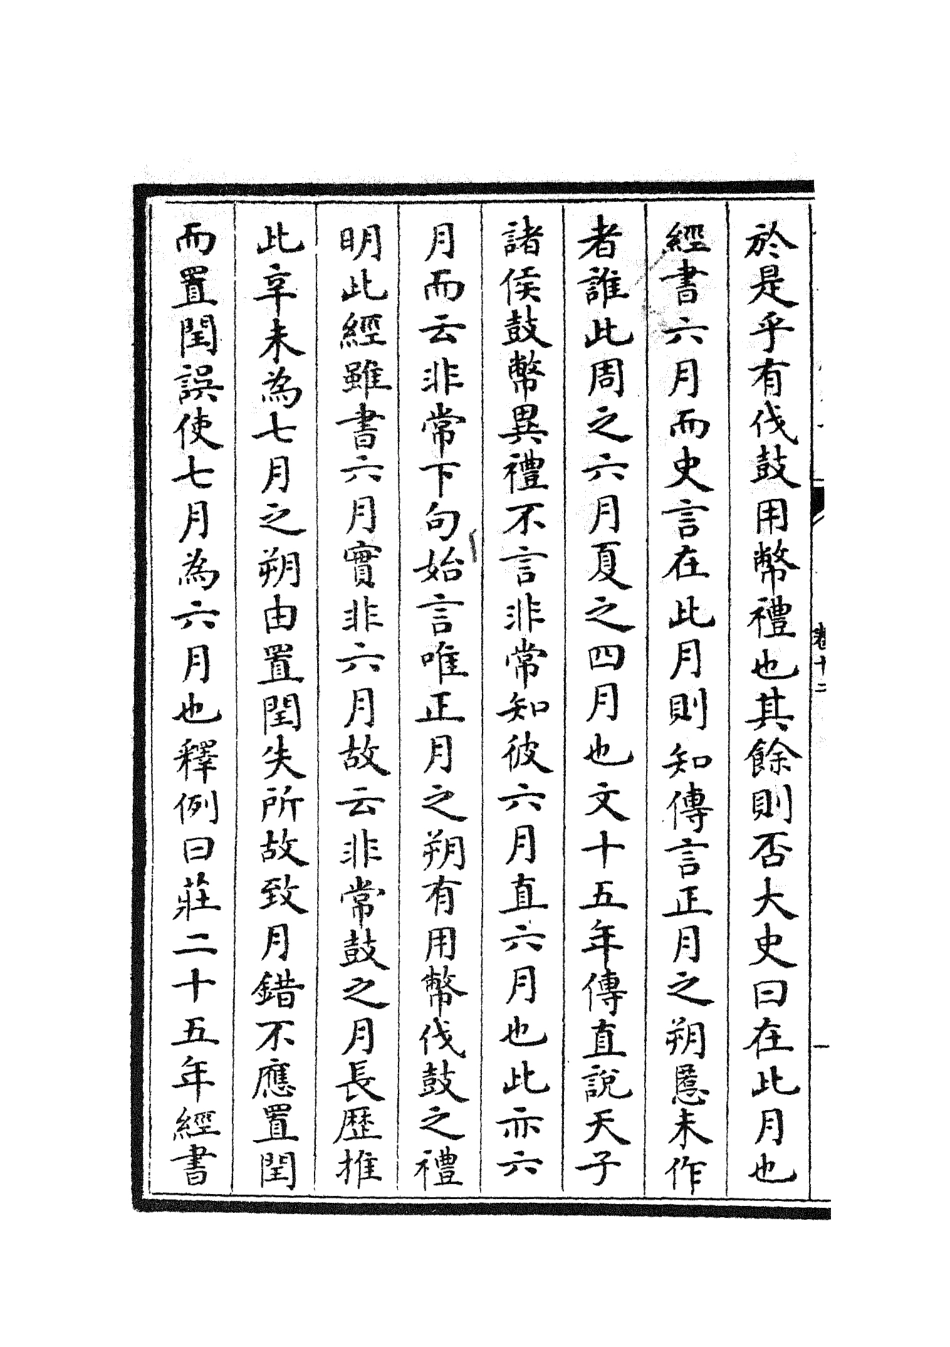 於是乎有伐鼓用幣禮也其餘則否大史曰在此月也
經書六月而史言在此月則知傳言正月之朔慝未作
者誰此周之六月夏之四月也文十五年傳直說天子
諸侯鼓幣異禮不言非常知彼六月直六月也此亦六
月而云非常下句始言唯正月之朔有用幣伐鼓之禮
明此經雖書六月實非六月故云非常鼓之月長歷推
此辛未為七月之朔由置閏失所故致月錯不應置閏
而置閏誤使七月為六月也釋例曰莊二十五年經書
卷十二